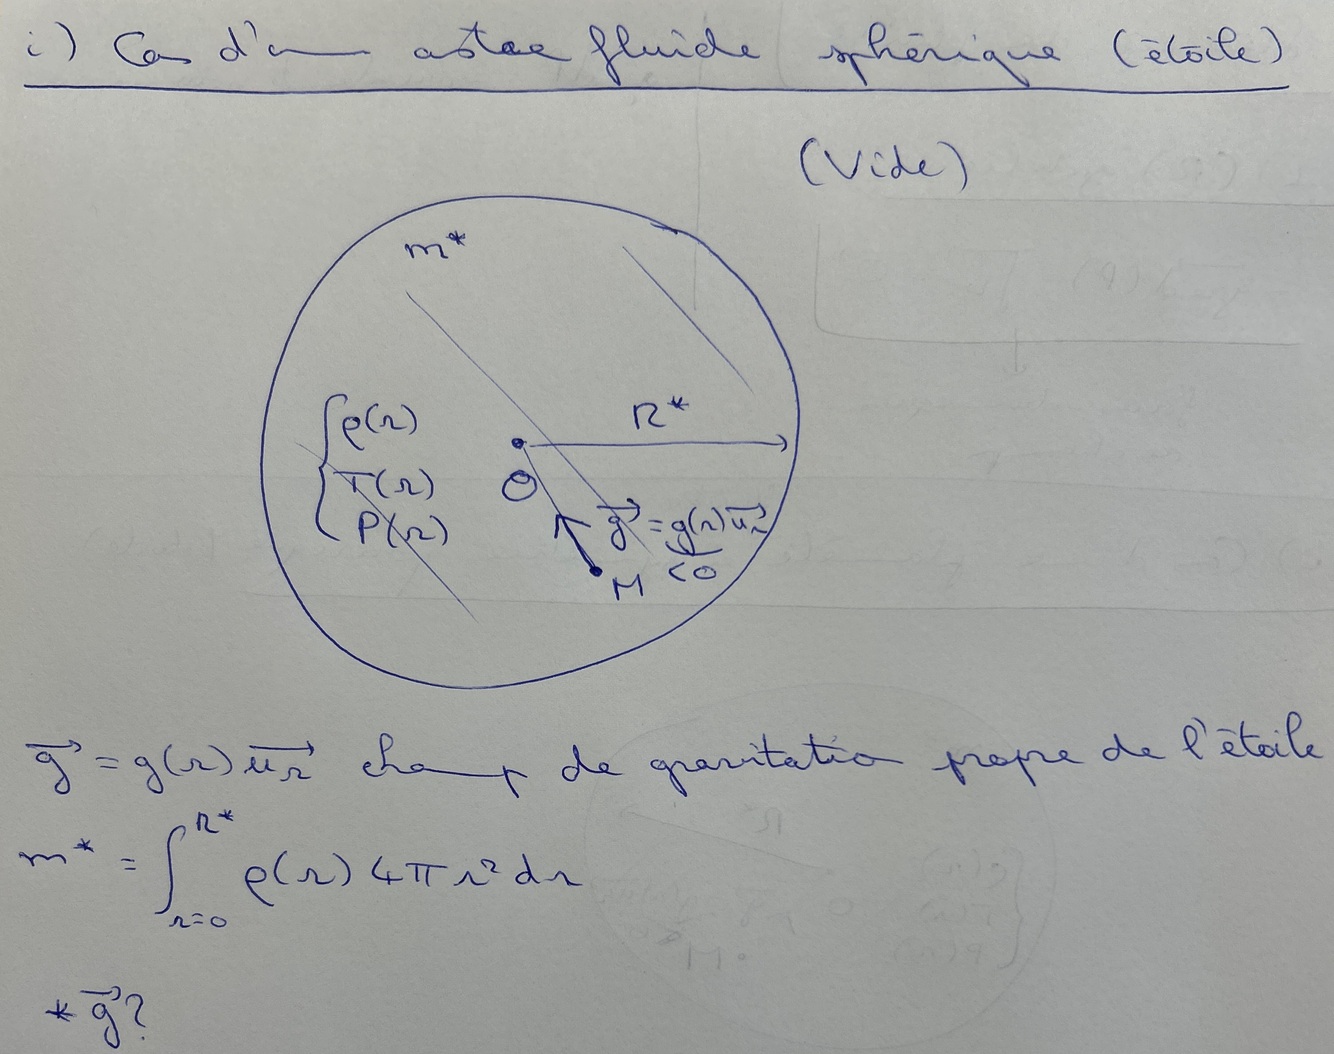 i) Cas d'un astre fluide sphérique (étoile)
(Vide)
m*
R*
ρ(r)
T(r)
P(r)
O
g⃗ = g(r) u⃗r
<0
M
g⃗ = g(r) u⃗r champ de gravitation propre de l'étoile
m* = ∫_{r=0}^{R*} ρ(r) 4π r² dr
* g⃗ ?